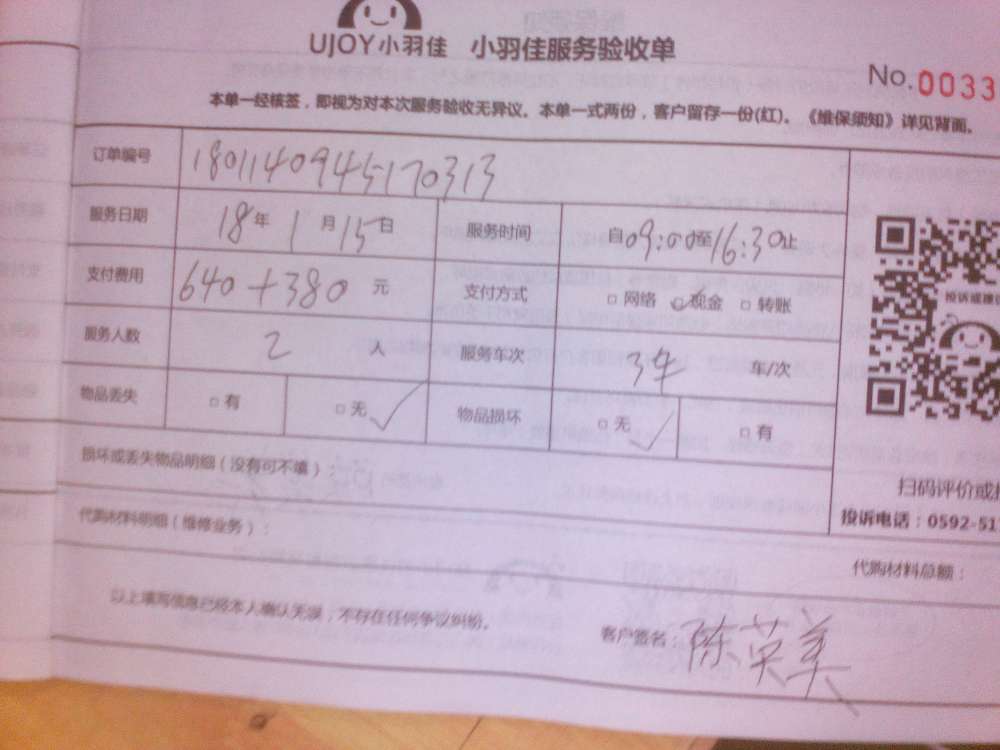 UJOY小羽佳 小羽佳服务验收单
No.0033
本单一经核签，即视为对本次服务验收无异议。本单一式两份，客户留存一份(红)。《维保须知》详见背面。
订单编号 180114094517 0313
服务日期 18年 1月15日 服务时间 自09:00至16:30止
支付费用 640+380 元 支付方式 □网络 □现金 □转账
服务人数 2 人 服务车次 3车 车/次
物品丢失 □有 □无 ✓ 物品损坏 □无 ✓ □有
损坏或丢失物品明细（没有可不填）：
投诉或建
扫码评价或
投诉电话：0592-51
代购材料明细（维修业务）：
代购材料总额：
以上填写信息已经本人确认无误，不存在任何争议纠纷。 客户签名：陈英美